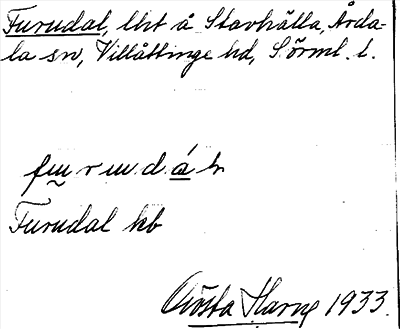 Furudal, lht å Stavhälla, Årda-
la sn, Villåttinge hd, Sörml. l.
Furudal hb
Gösta Harne 1933.